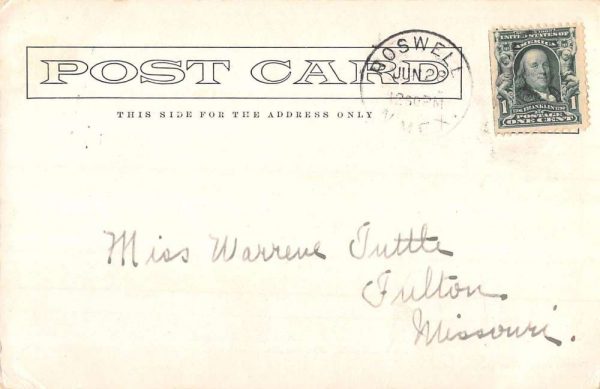 POST CARD
THIS SIDE FOR THE ADDRESS ONLY
ROSWELL
JUN 29
N. MEX.
UNITED STATES OF AMERICA
FRANKLIN
1 1
POSTAGE
ONE CENT
Miss Warrene Tuttle
Fulton.
Missouri.